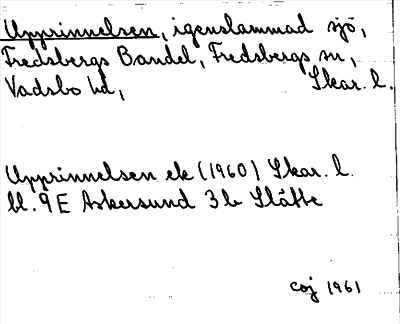 Upprinnelsen, igenslammad sjö,
Fredsbergs Bandel, Fredsbergs sn,
Vadsbo hd, Skar. l.
Upprinnelsen ek (1960) Skar. l.
bl. 9E Askersund 3b Slätte
coj 1961